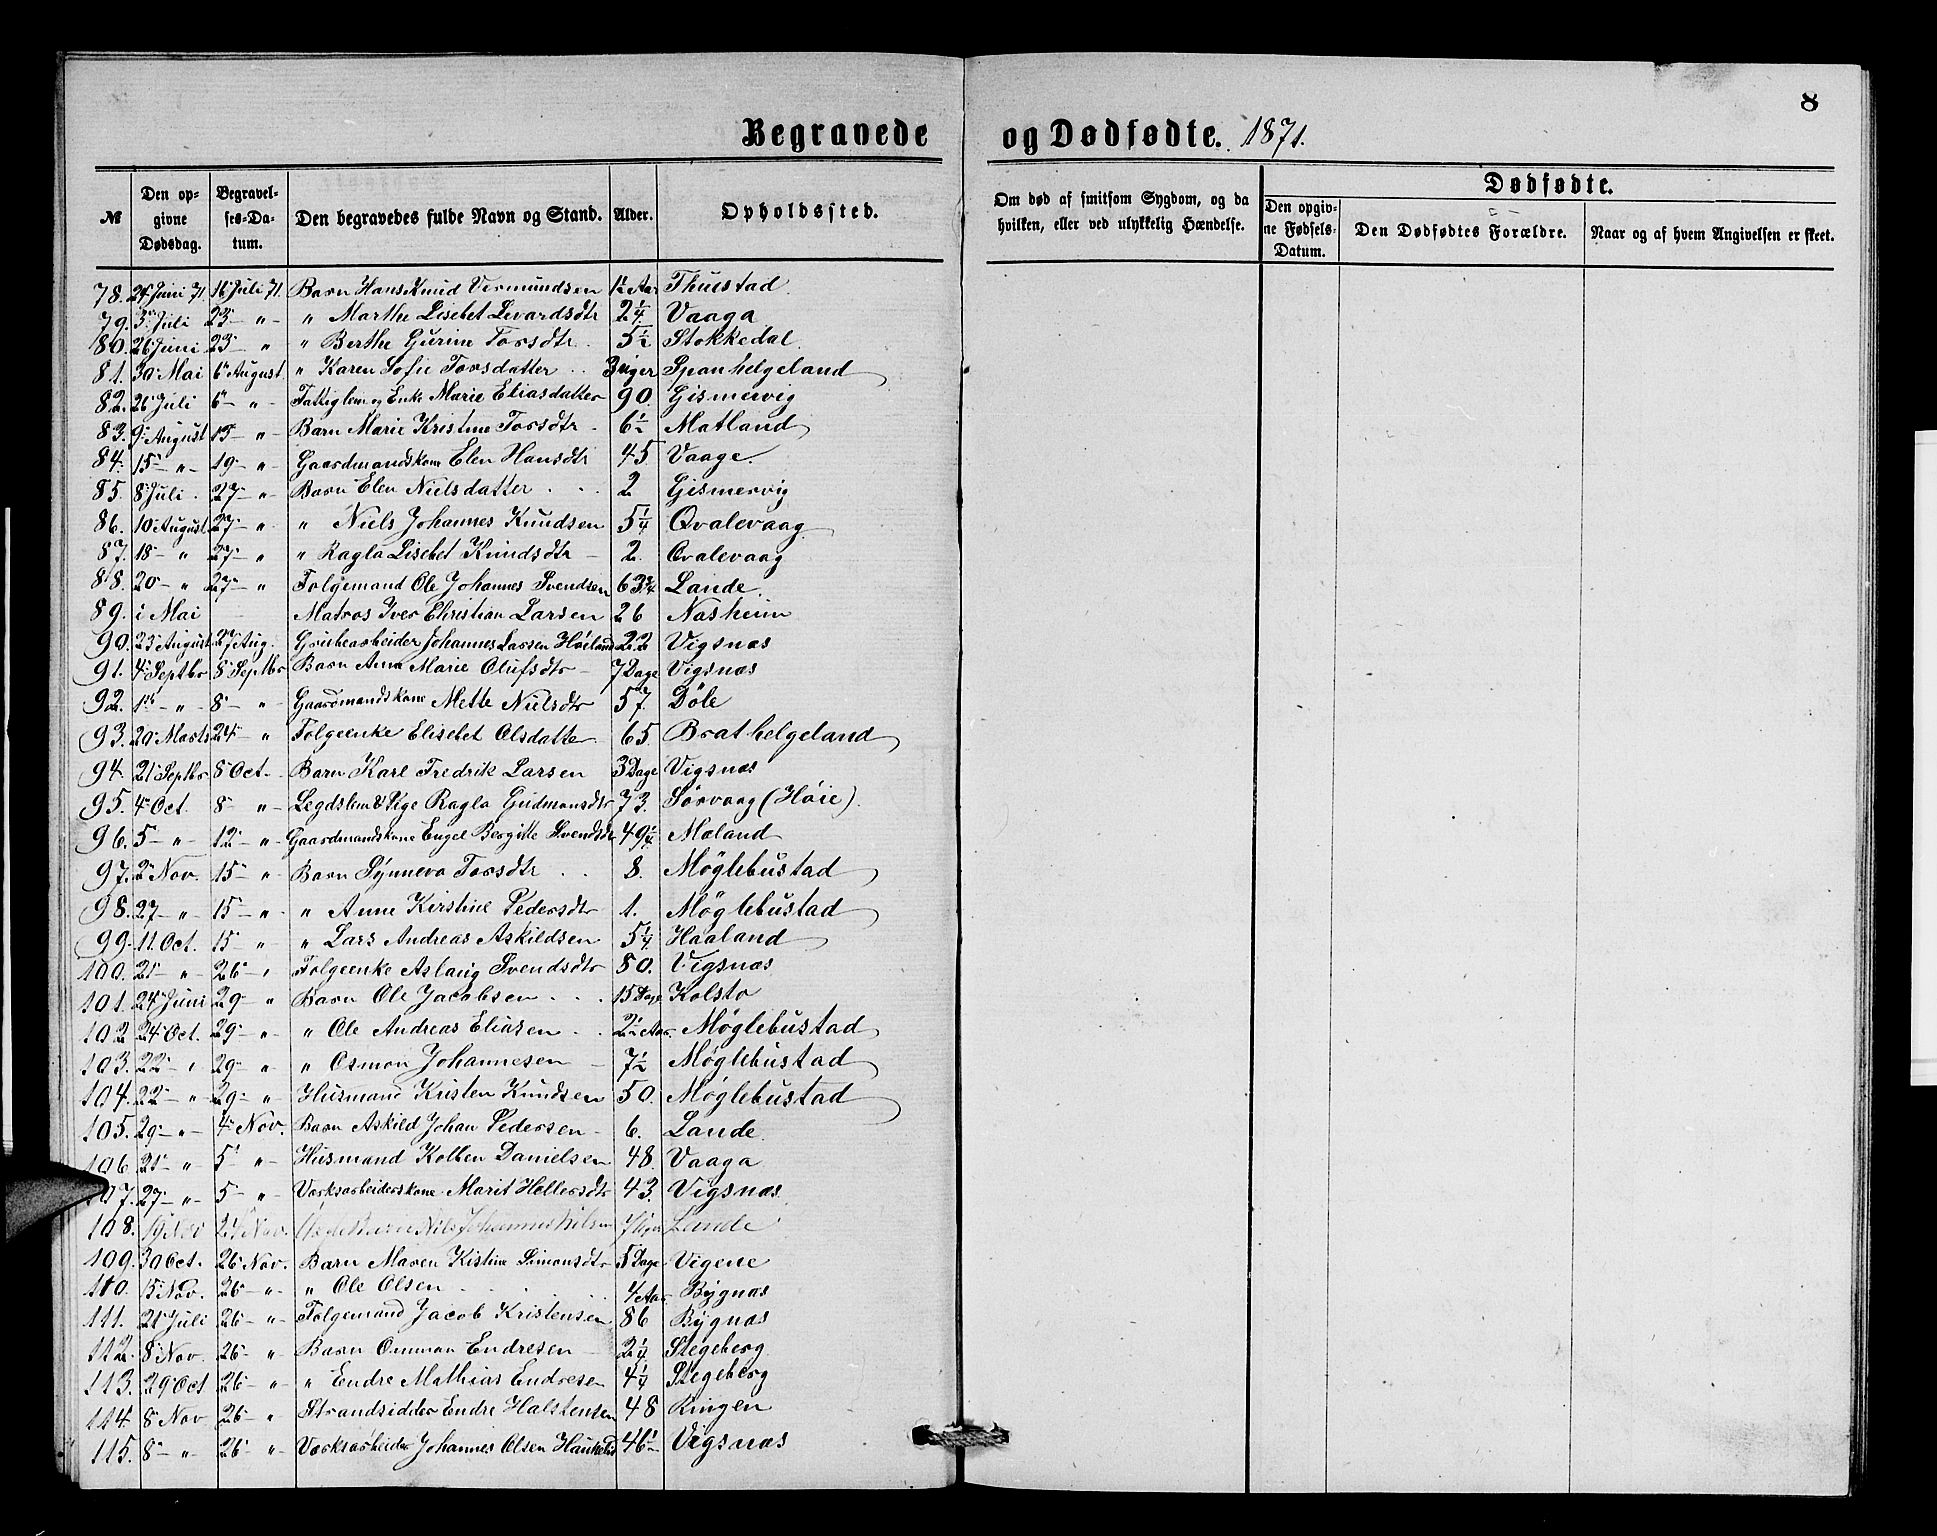 8
Begravede og Dødfødte. 1871.
№ Den opgivne Dødsdag. Begravelses-Datum. Den begravedes fulde Navn og Stand. Alder. Opholdssted. Om død af smitsom Sygdom, og da hvilken, eller ved ulykkelig Hændelse. Dødfødte. Den opgivne Fødsels-Datum. Den Dødfødtes Forældre. Naar og af hvem Angivelsen er skeet.
78. 24 Juni 71 16 Juli 71. Barn Hans Knud Vermundsen 1½ Aar Thuestad
79. 3 Juli 23 - " - " Marthe Lisebet Sivardsdtr 2¼ Vaaga
80. 26 Juni 23 - " " Berthe Gurine Torsdtr 5½ Stokkedal
81. 30 Mai 6 August. " Karen Sofie Torsdatter 3 Uger Spanhelgeland
82. 26 Juli 6 - " - Fattiglem og Enke Marie Eliasdatter 90. Gismervig
83. 9 August 13 - " - Barn Marie Kristine Torsdtr 6½ Matland
84. 15 - " - 19 - " - Gaardmandskone Elen Hansdtr 45. Vaage.
85. 8 Juli 27 - " Barn Elen Nielsdatter 2 Gismervig
86. 10 August 27 - " " Niels Johannes Knudsen 5¼ Qvalevaag
87. 18 - " 27 - " " Ragla Lisebet Knudsdtr 2. Qvalevaag
88. 20 - " 27 - " Folgemand Ole Johannes Svendsen 63¾ Lande.
89. i Mai Matros Iver Christian Larsen 26 Nasheim
90. 23 August 27 Aug. Grubearbeider Johannes Larsen Høieland 22 Vigsnæs
91. 4 Septbr 8 Septbr Barn Anna Marie Olufsdtr 7 Dage Vigsnæs
92. 1 - " - 8 - " Gaardmandskone Mette Nielsdtr 57. Döle
93. 20 Marts 24 - " Folgeenke Elisebet Olsdatter 65. Brathelgeland
94. 21 Septbr 8 Oct. Barn Karl Fredrik Larsen 3 Dage Vigsnæs
95. 4 Oct. 8 - " - Legdslem & Pige Ragla Gudmonsdtr 73. Sörvaag (Höie).
96. 5 - " 12 - " - Gaardmandskone Engel Bergitte Svendsdtr 49¼ Maland
97. 2 Nov. 15 - " Barn Synneva Torsdtr 8. Möglebustad
98. 27 - " - 15 - " - " Anne Kirstine Pedersdtr 1. Möglebustad
99. 11 Oct. 15 - " " Lars Andreas Askildsen 5¼ Haaland
100. 21 - " - 26 - " Folgeenke Aslaug Svendsdtr 80. Vigsnæs
101. 24 Juni 29 - " Barn Ole Jacobsen 15 Dage Kolstø
102. 24 Oct. 29 - " " Ole Andreas Eliasen 2½ Aar. Møglebustad
103. 22 - " 29 - " " Osmon Johannesen 7½ Møglebustad
104. 22 - " - 29 - " Husmand Kristen Knudsen 50. Møglebustad
105. 29 - " - 4 Nov. Barn Askild Johan Pedersen 6. Lande.
106 21 - " 5 " - Husmand Kolben Danielsen 48. Vaaga
107. 27 - " - 5 - " Værksarbeiderskone Marit Hellersdtr 43. Vigsnæs
108. 24 Nov. Nils Johannes Nilsen Lande
109. 30 Oct. 26 Nov. Barn Maren Kistine Simonsdtr 5 Dage Vigene
110. 15 Nov. 26 - " - " Ole Olsen 4 Aar Bygnæs
111. 21 Juli 26 - " - Folgemand Jacob Kristensen 86 Bygnæs
112. 8 Nov. 26 - " Barn Ommon Endresen 2¼ Stegeberg
113. 29 Oct 26 - " " Endre Mathias Endresen 4¼ Stegeberg
114. 8 Nov 26 - " Strandsidder Endre Halstensen 48 Ringen
115. 8 - " 26 - " Værksarbeider Johannes Olsen Haukelid 46½ Vigsnæs